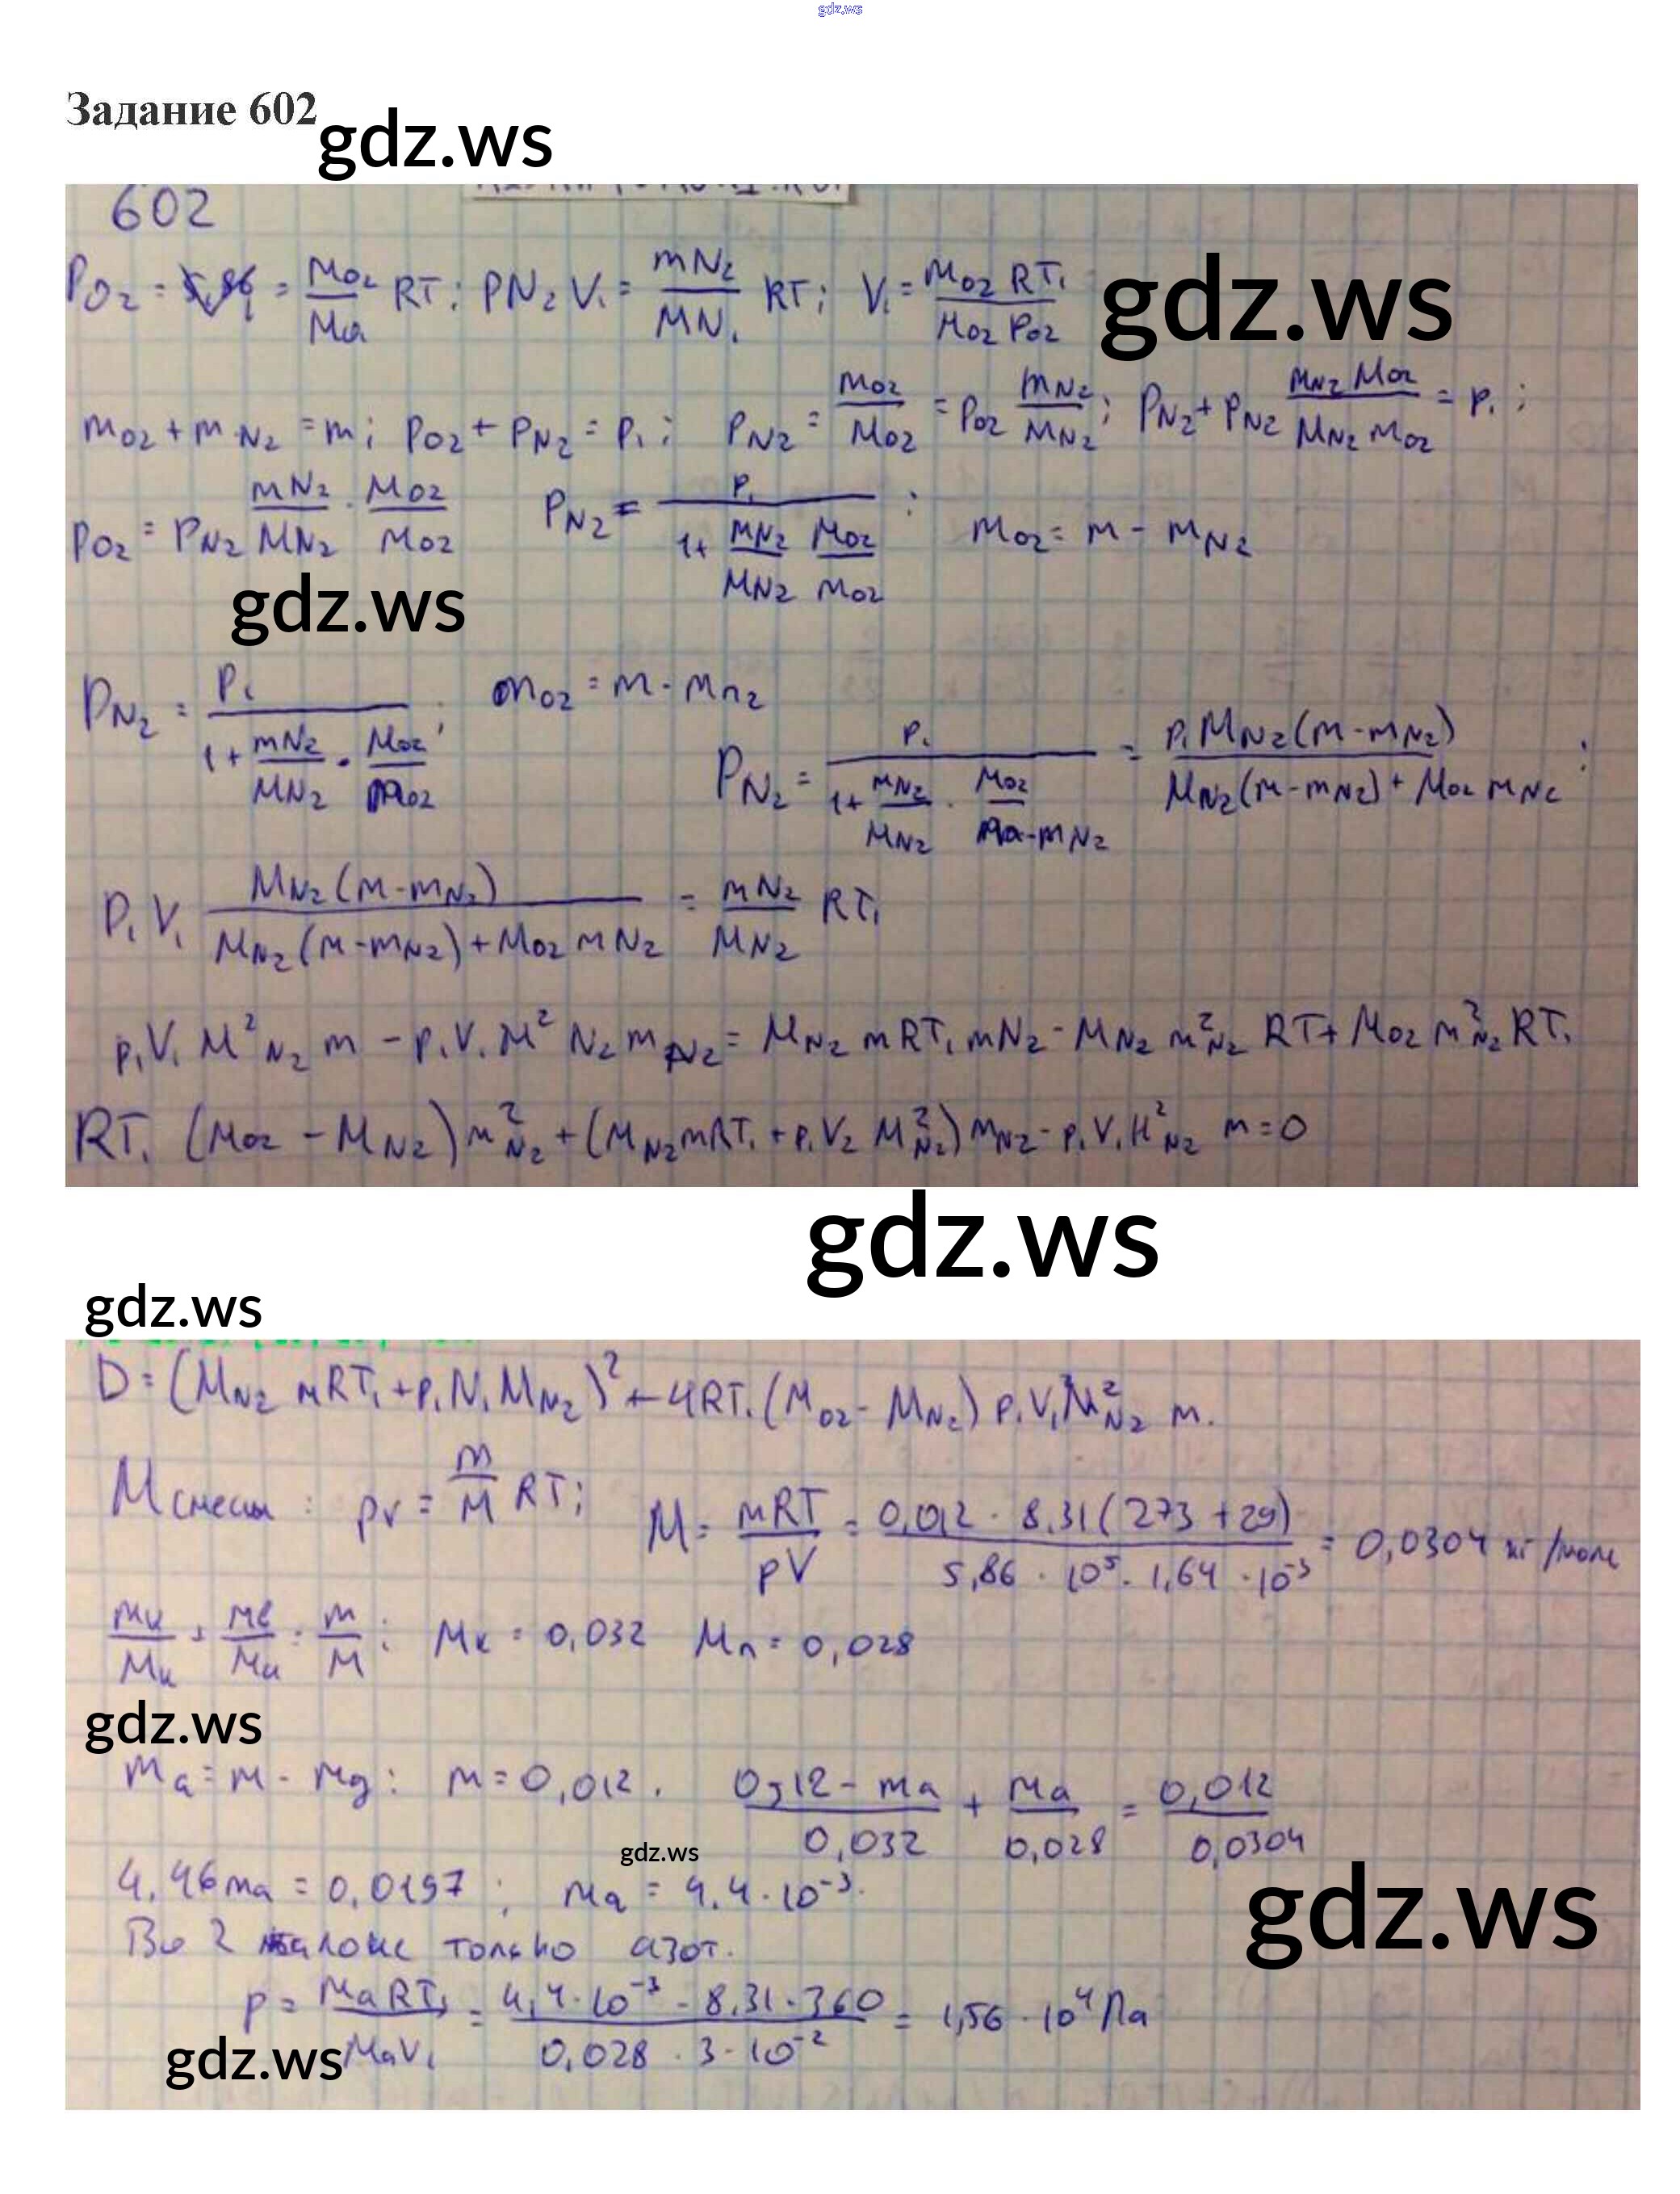 gdz.ws
Задание 602
gdz.ws
602
P O2 = = M O2 / Ma RT; PN2 V1 = mN2 / MN1 RT; V1 = M O2 RT1 / M O2 P O2
gdz.ws
m O2 + m N2 = m; p O2 + p N2 = p1; p N2 = m O2 / M O2 = p O2 m N2 / M N2; p N2 + p N2 m N2 M O2 / M N2 m O2 = p1;
p O2 = p N2 m N2 / M N2 · M O2 / m O2 P N2 = p1 / 1+ m N2 / M N2 M O2 / m O2 ; m O2 = m - m N2
gdz.ws
P N2 = p1 / 1+ m N2 / M N2 · M O2 / m O2 ; m O2 = m - m n2
P N2 = p1 / 1+ m N2 / M N2 · M O2 / ma - m N2 = p1 M N2 (m - m N2) / M N2 (m - m N2) + M O2 m N2 ;
P1 V1 M N2 (m - m N2) / M N2 (m - m N2) + M O2 m N2 = m N2 / M N2 RT1
p1 V1 M² N2 m - p1 V1 M² N2 m N2 = M N2 m RT1 m N2 - M N2 m² N2 RT + M O2 m² N2 RT1
RT1 (M O2 - M N2) m² N2 + (M N2 mRT1 + p1 V2 M² N2) m N2 - p1 V1 M² N2 m = 0
gdz.ws
gdz.ws
D = (M N2 mRT1 + p1 N1 M N2)² + 4RT1 (M O2 - M N2) p1 V1 M² N2 m.
M смеси : pv = m / M RT; M = mRT / pV = 0,012 · 8,31 (273 + 29) / 5,86 · 10⁵ · 1,64 · 10⁻³ = 0,0304 кг/моль
mк / Mк + mв / Mк = m / M ; Mк = 0,032 Mп = 0,028
gdz.ws
ma = m - mg : m = 0,012 . 0,12 - ma / 0,032 + ma / 0,028 = 0,012 / 0,0304
gdz.ws
4,46 ma = 0,0197 ; ma = 4,4 · 10⁻³.
gdz.ws
Во 2 балоне только азот.
p = ma RT1 / Ma V1 = 4,4 · 10⁻³ · 8,31 · 360 / 0,028 · 3 · 10⁻² = 1,56 · 10⁴ Па
gdz.ws